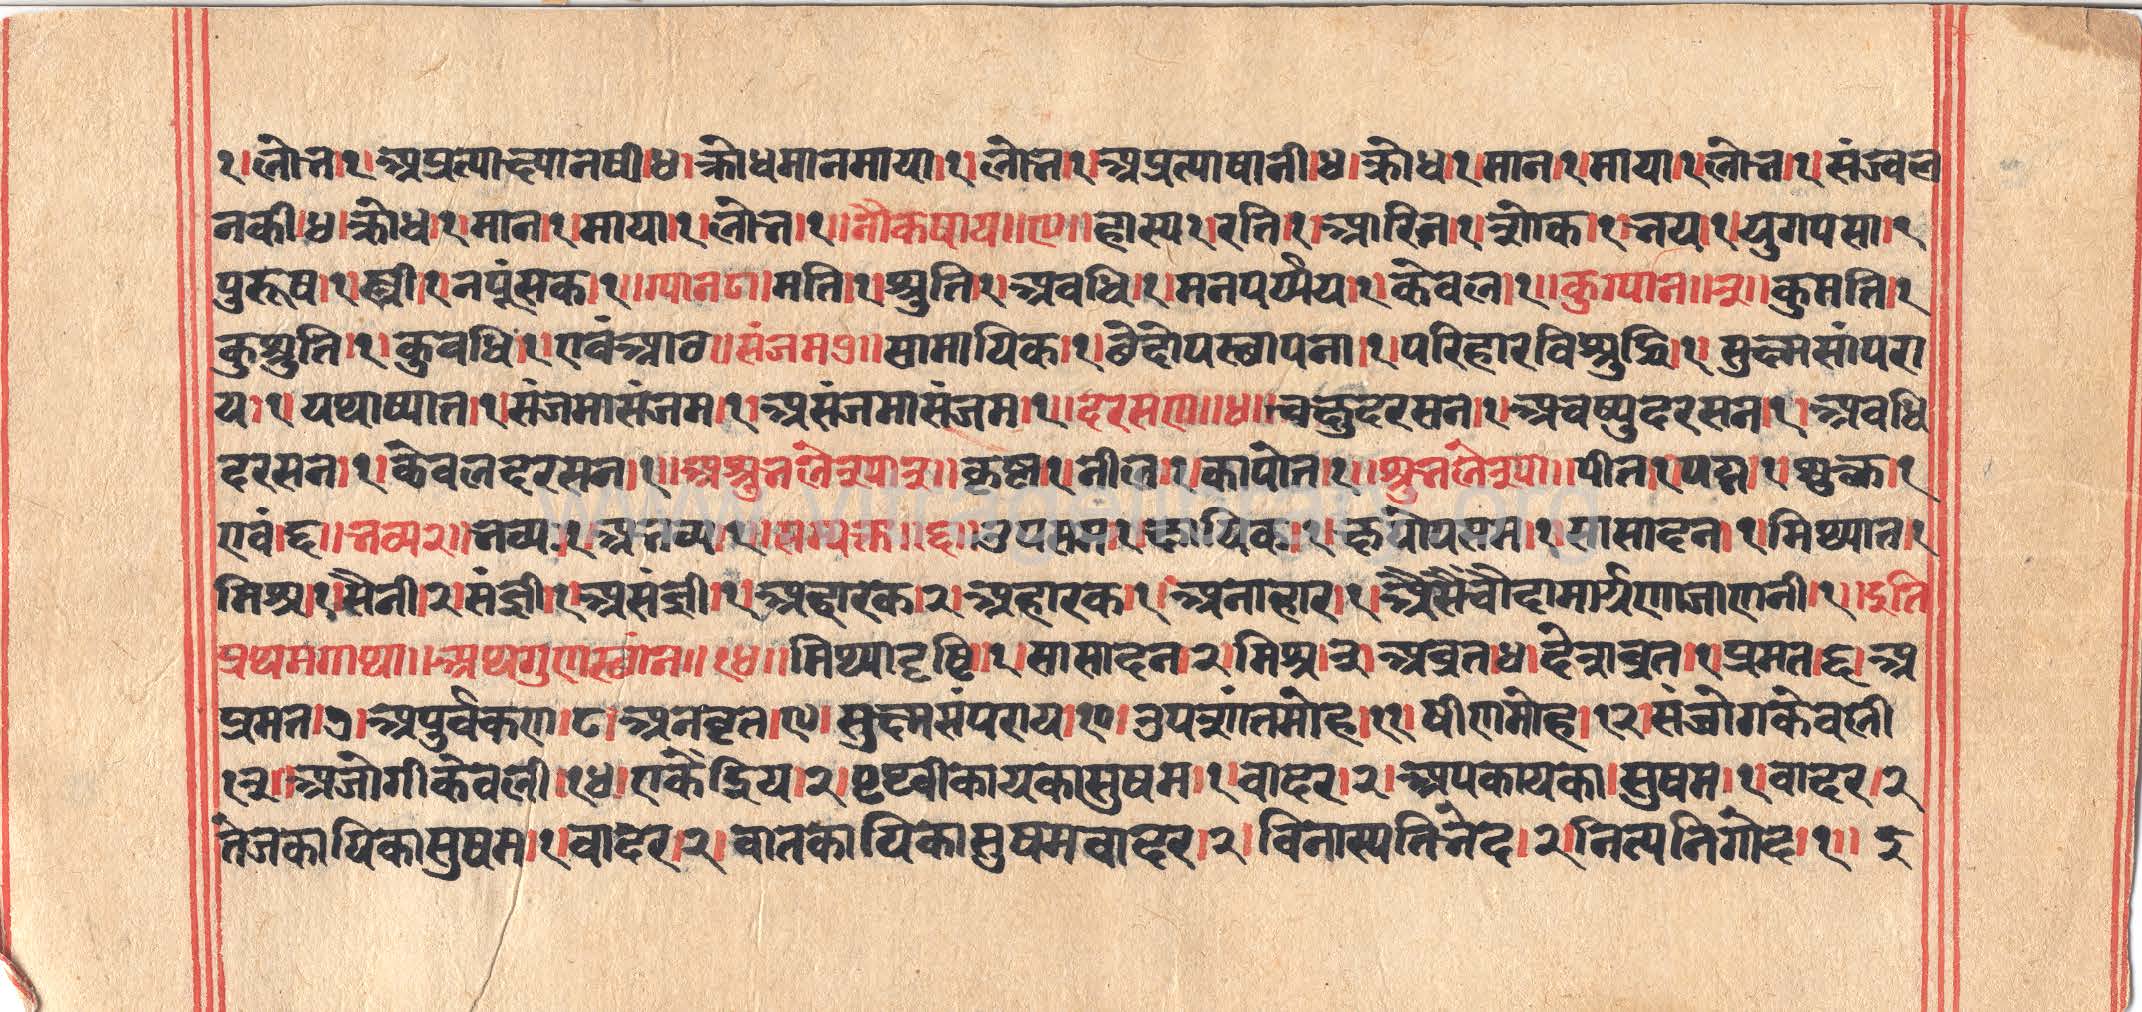 १।लोभ।१।अप्रत्याख्यानषी।४।क्रोधमानमाया।१।लोभ।१।अप्रत्याषानी।४।क्रोध।१।मान।१।माया।१।लोभ।१।संज्वल
नकी।४।क्रोध।१।मान।१।माया।१।लोभ।१॥नौकषाय॥९॥हास्य।१।रति।१।आरित।१।शोक।१।भय।१।युगपसा।१
पुरूष।१।स्त्री।१।नपुंसक।१॥ग्यान८।मति।१।श्रुति।१।अवधि।१।मनपर्य्यय।१।केवल।१॥कुग्यान॥३॥कुमति।१
कुश्रुति।१।कुवधि।१।एवंआठ॥संजम७॥सामायिक।१।छेदोपस्थापना।१।परिहारविश्रुद्धि।१।सुक्ष्मसांपरा
य।१।यथाष्यात।१।संजमासंजम।१।असंजमासंजम।१॥दरसण॥४॥चक्षुदरसन।१।अचष्युदरसन।१।अवधि
दरसन।१।केवलदरसन।१॥अश्रुभलेश्या३॥कृष्ण।१।नील।१।कापोत।१॥श्रुभलेश्या॥पीत।१।पद्म।१।श्रुक्ल।१
एवं६॥भव्य२॥भव्य।१।अभव्य।१॥सम्यक्त॥६॥उपसम।१।क्षायिक।१।क्षयोपसम।१।सासादन।१।मिथ्यात।१
मिश्र।१।सैनी।२।संज्ञी।१।असंज्ञी।१।अहारक।२।अहारक।१।अनाहार।१।अैसैंचौदामार्गणाजाणनी।१॥इति
प्रथमगाथा॥अथगुणस्थांन॥१४॥मिथ्यादृष्टि।१।सासादन।२।मिश्र।३।अव्रत।४।देशव्रत।५।प्रमत।६।अ
प्रमत।७।अपुर्वकण।८।अनवृत।९।सुक्ष्मसंपराय।१०।उपशांतमोह।११।षीणमोह।१२।संजोगकेवली
१३।अजोगीकेवली।१४।एकेंद्रिय।२।पृथ्वीकायकासुषम।१।वादर।२।अपकायका।सुषम।१।वादर।२
तेजकायिकासुषम।१।वादर।२।वातकायिकासुषमवादर।२।विनास्पतिभेद।२।नित्यनिगोद।१॥इ